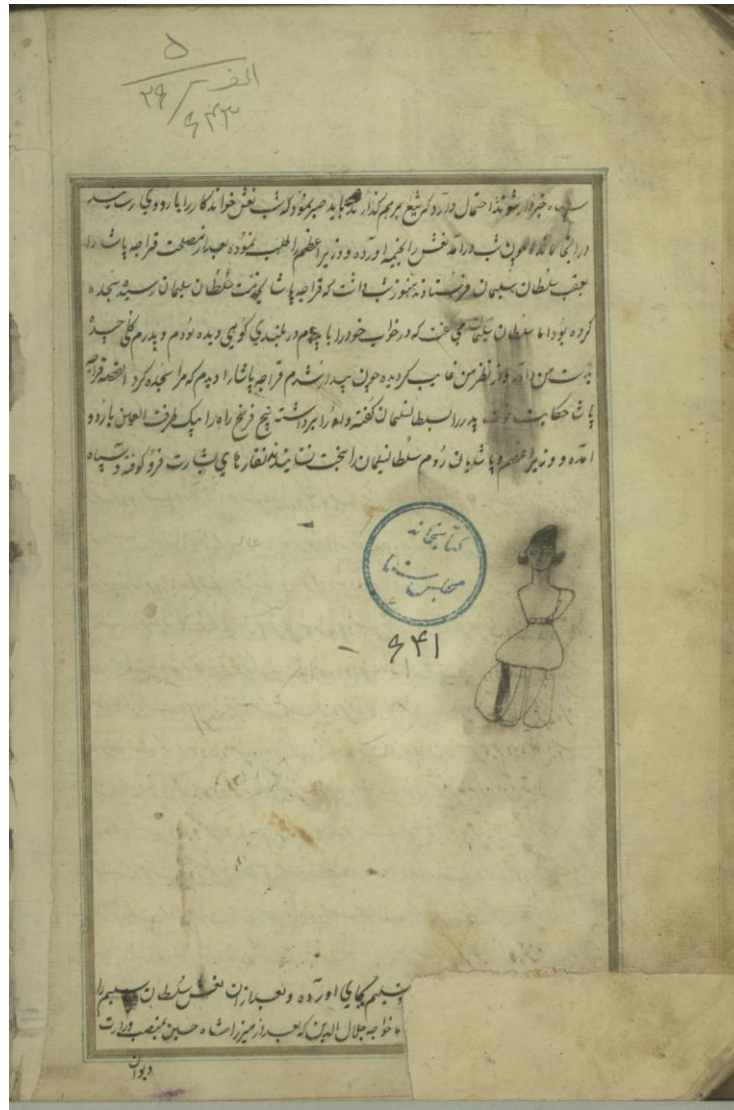 ۵
الف
۲۶ / ۶۴۳
سپاه خبردار شوند احتمال دارد که تیغ بر هم گذارند باید صبر نمود که شب نعش خواندگار را باردوی
در آنجا مانده چون شب درآمد نعش را بخیمه آورده و وزیر اعظم را طلب نموده بعد از مصلحت قراجه پاشا را
بعقب سلطان سلیمان فرستادند هنوز شب داشت که قراجه پاشا بخدمت سلطان سلیمان رسیده سجده
کرده بود اما سلطان سلیمان می گفت که در خواب خود را با پدرم در بلندی کوهی دیده بودم و پدرم کلی چند
بدست من داد و از نظر من غایب گردیده چون بیدار شدم قراجه پاشا را دیدم که مرا سجده کرد القصه قراجه
پاشا حکایت فوت پدر را بسلطان سلیمان گفته و او را برداشته پنج فرسخ راه را بیک طرفة العین باردو
آمده و وزیر اعظم و پاشایان روم سلطان سلیمان را بتخت نشانیدند نقارهای بشارت فرو کوفته و سپاه
کتابخانه
مجلس سنا
۶۴۱
تسلیم بجای آورده و بعد از آن نعش سلطان سلیم را
خواجه جلال الدین که بعد از میرزا شاه حسین بمنصب وزارت
دیوان